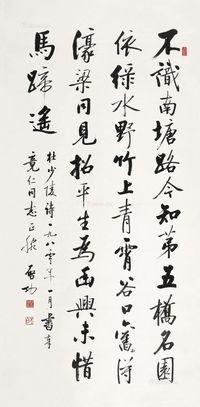 不識南塘路今知第五橋名園
依綠水野竹上青霄谷口舊得
濠梁同見招平生為幽興未惜
馬蹄遙
杜少陵詩一九八〇年一月書奉
竟仁同志正腕 啟功